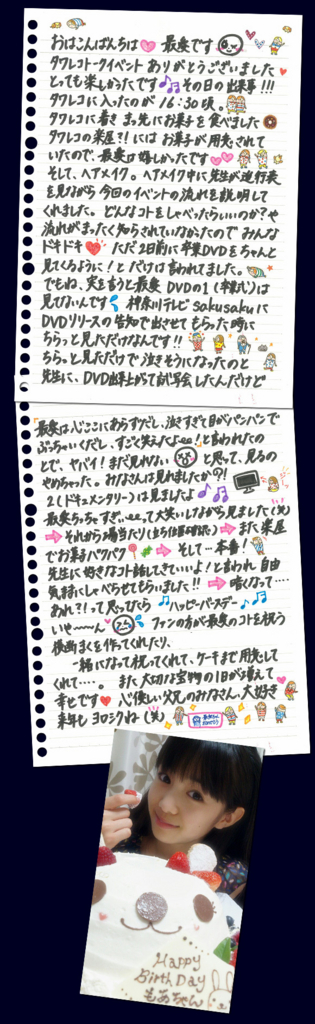 おはこんばんちは 最楽です
タワレコトークイベント ありがとうございました
とっても楽しかったです その日の出来事!!!
タワレコに入ったのが 16:30頃。
タワレコに着き まっ先にお菓子を食べました
タワレコの楽屋?!には お菓子が用意されて
いたので、最楽は嬉しかったです
そして、ヘアメイク。ヘアメイク中に先生が進行表
を見ながら 今回のイベントの流れを説明して
くれました。どんなコトをしゃべったらいいのか?や
流れがまったく知らされていなかったので みんな
ドキドキ ただ2日前に卒業DVDをちゃんと
見てくるように!と だけは言われてました。
でもね、実を言うと最楽 DVDの1(卒業式)は
見てないんです 神奈川テレビ sakusakuに
DVDリリースの告知で出させてもらった時に
ちらっと見ただけなんです!!
ちらっと見ただけで 泣きそうになったのと
先生に、DVD出来上がって試写会したんだけど
最楽は心ここにあらずだし、泣きすぎて目がパンパンで
ぶっちゃいくだし、すごく笑えたよee!と言われたの
とで、ヤバイ!まだ見れない と思って、見るの
やめちゃった。みなさんは見れましたか?!
2(ドキュメンタリー)は見ましたよ
最楽ちっちゃすぎぃeeって大笑いしながら見ました(笑)
それから場当たり(立ち位置確認) また楽屋
でお菓子パクパク そして…本番!
先生に好きなコト話してきていいよ!と言われ 自由
気ままにしゃべらせてもらいました!! 暗くなって….
あれ?!って思ったら ハッピーバースデー
いや〜〜〜ん ファンの方が最楽のコトを祝う
横断まくを作ってくれたり、
一緒になって祝ってくれて、ケーキまで用意して
くれて…..。また大切な宝物の1日が増えて
幸せです 心優しい父兄のみなさん、大好き
来年も ヨロシクね(笑)
Happy
Birth Day
もあちゃん